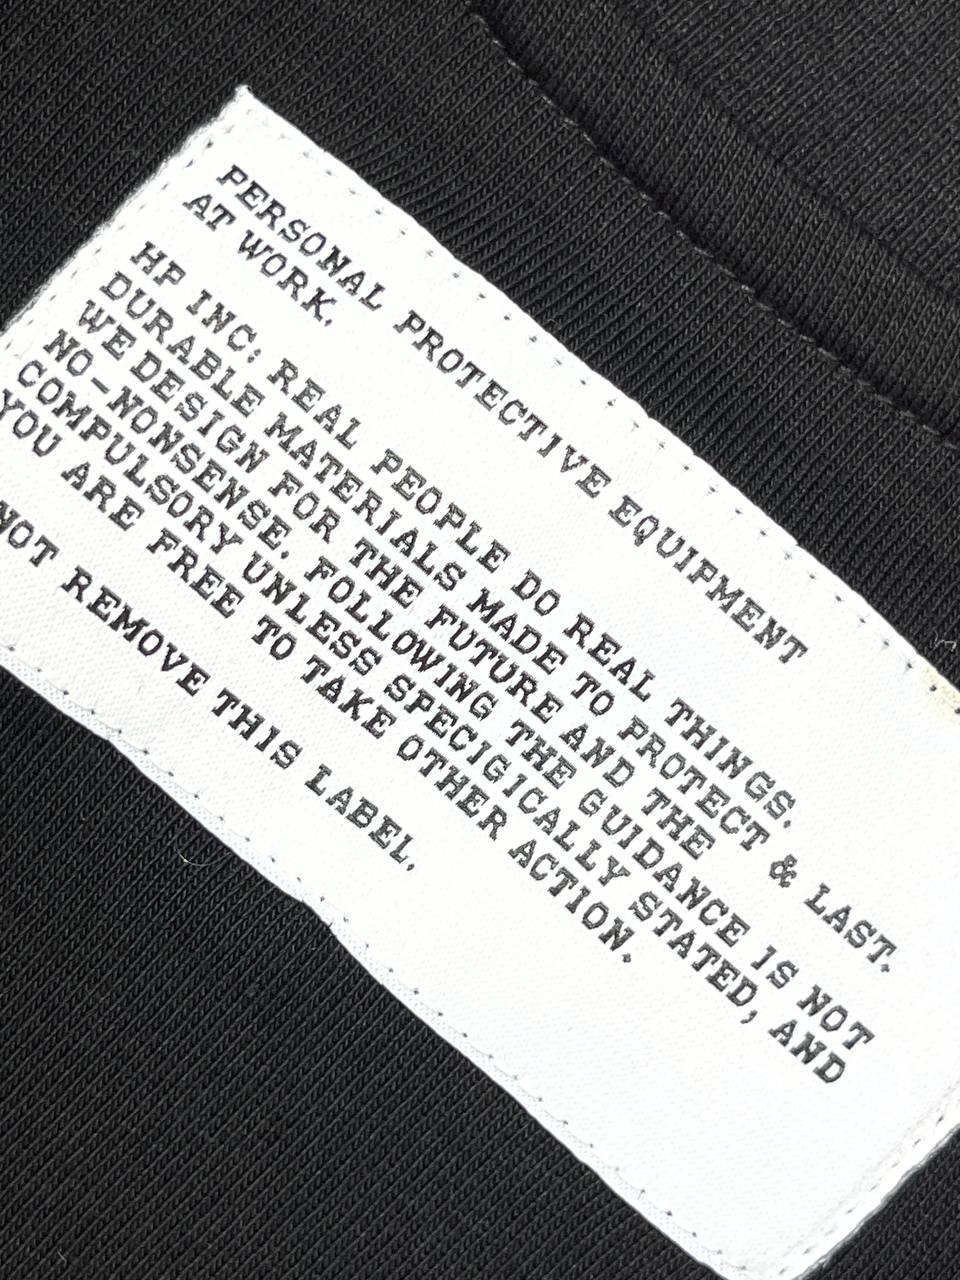 PERSONAL PROTECTIVE EQUIPMENT
AT WORK.
HP INC: REAL PEOPLE DO REAL THINGS.
DURABLE MATERIALS MADE TO PROTECT & LAST.
WE DESIGN FOR THE FUTURE AND THE
NO-NONSENSE. FOLLOWING THE GUIDANCE IS NOT
COMPULSORY UNLESS SPECIGICALLY STATED, AND
YOU ARE FREE TO TAKE OTHER ACTION.
NOT REMOVE THIS LABEL.